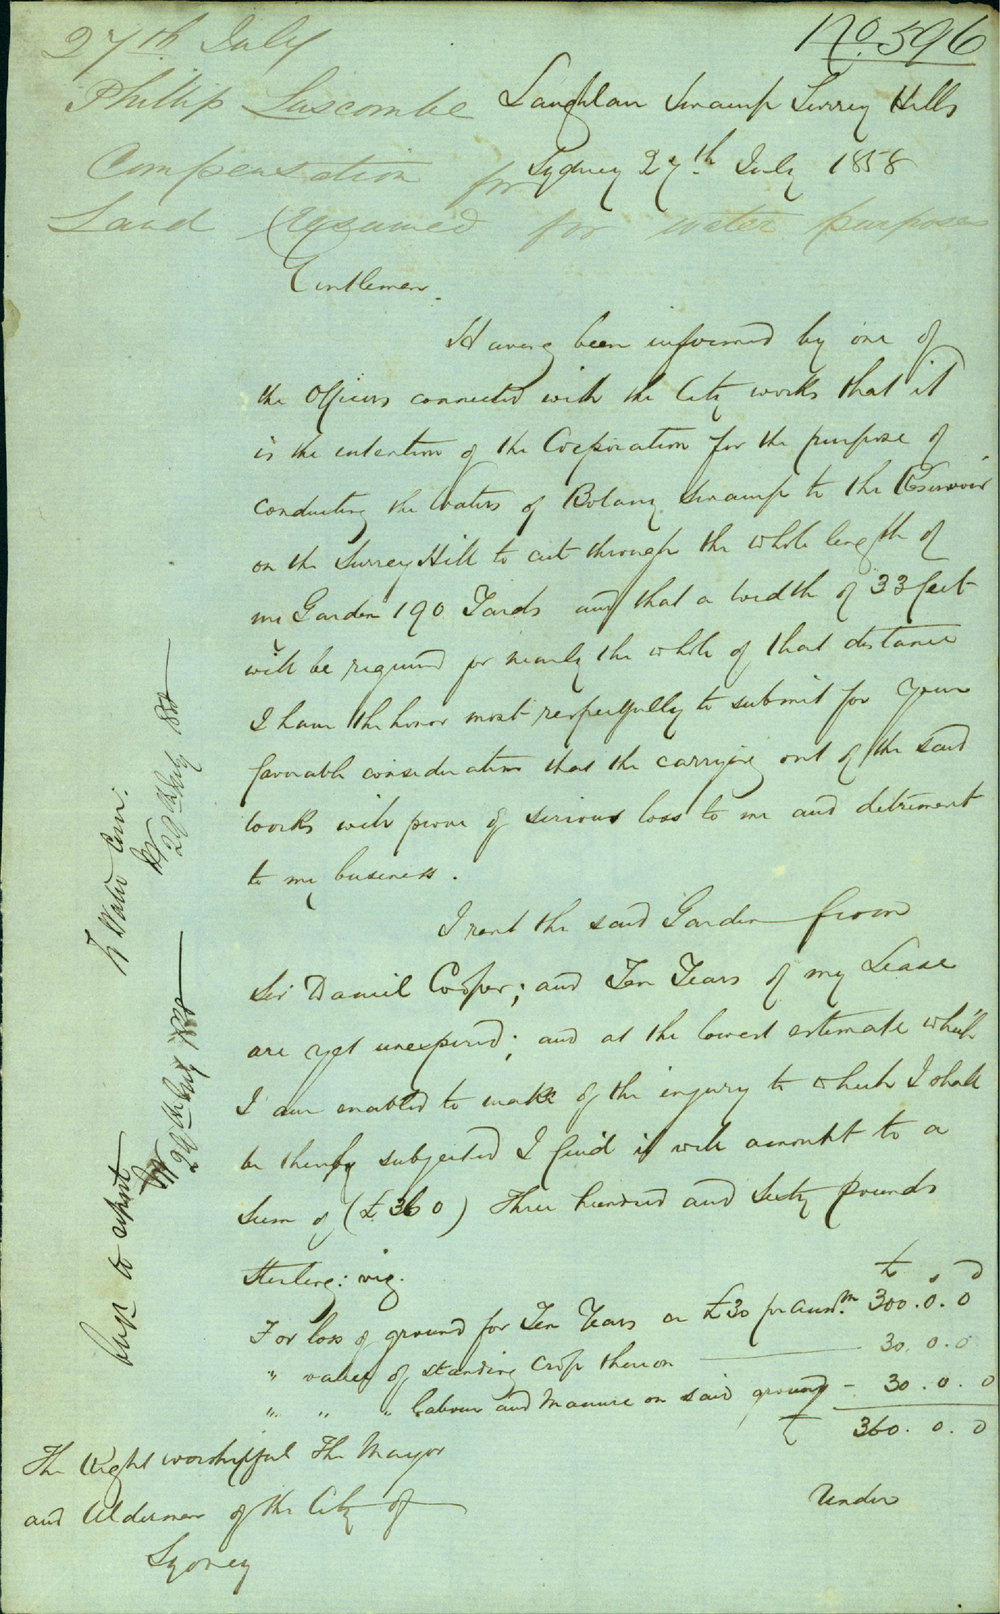 No. 596
27th July
Phillip Luscombe
Compensation for
Land resumed for water purposes
Lauchlan Swamp Surrey Hills
Sydney 27th July 1858
Gentlemen.
Having been informed by one of
the Officers connected with the City works that it
is the intention of the Corporation for the purpose of
conducting the Waters of Botany Swamp to the Reservoir
on the Surrey Hill to cut through the whole length of
my Garden 190 Yards and that a width of 33 feet
will be required for nearly the whole of that distance
I have the honor most respectfully to submit for Your
favorable consideration that the carrying out of the said
works will prove of serious loss to me and detriment
to my business.
I rent the said Garden from
Sir Daniel Cooper; and Ten Years of my Lease
are yet unexpired; and at the lowest estimate which
I am enabled to make of the injury to which I shall
be thereby subjected I find it will amount to a
Sum of (£360) Three hundred and Sixty pounds
Sterling: viz.
£ s D
For loss of ground for Ten Years a £30 pr Annm. 300.0.0
" value of standing Crop thereon 30.0.0
" " " Labour and Manure on said ground - 30.0.0
£ 360.0.0
The Right worshipful The Mayor
and Aldermen of the City of
Sydney
Under
To Water Com.
29th July 1858
to report
29th July 1858